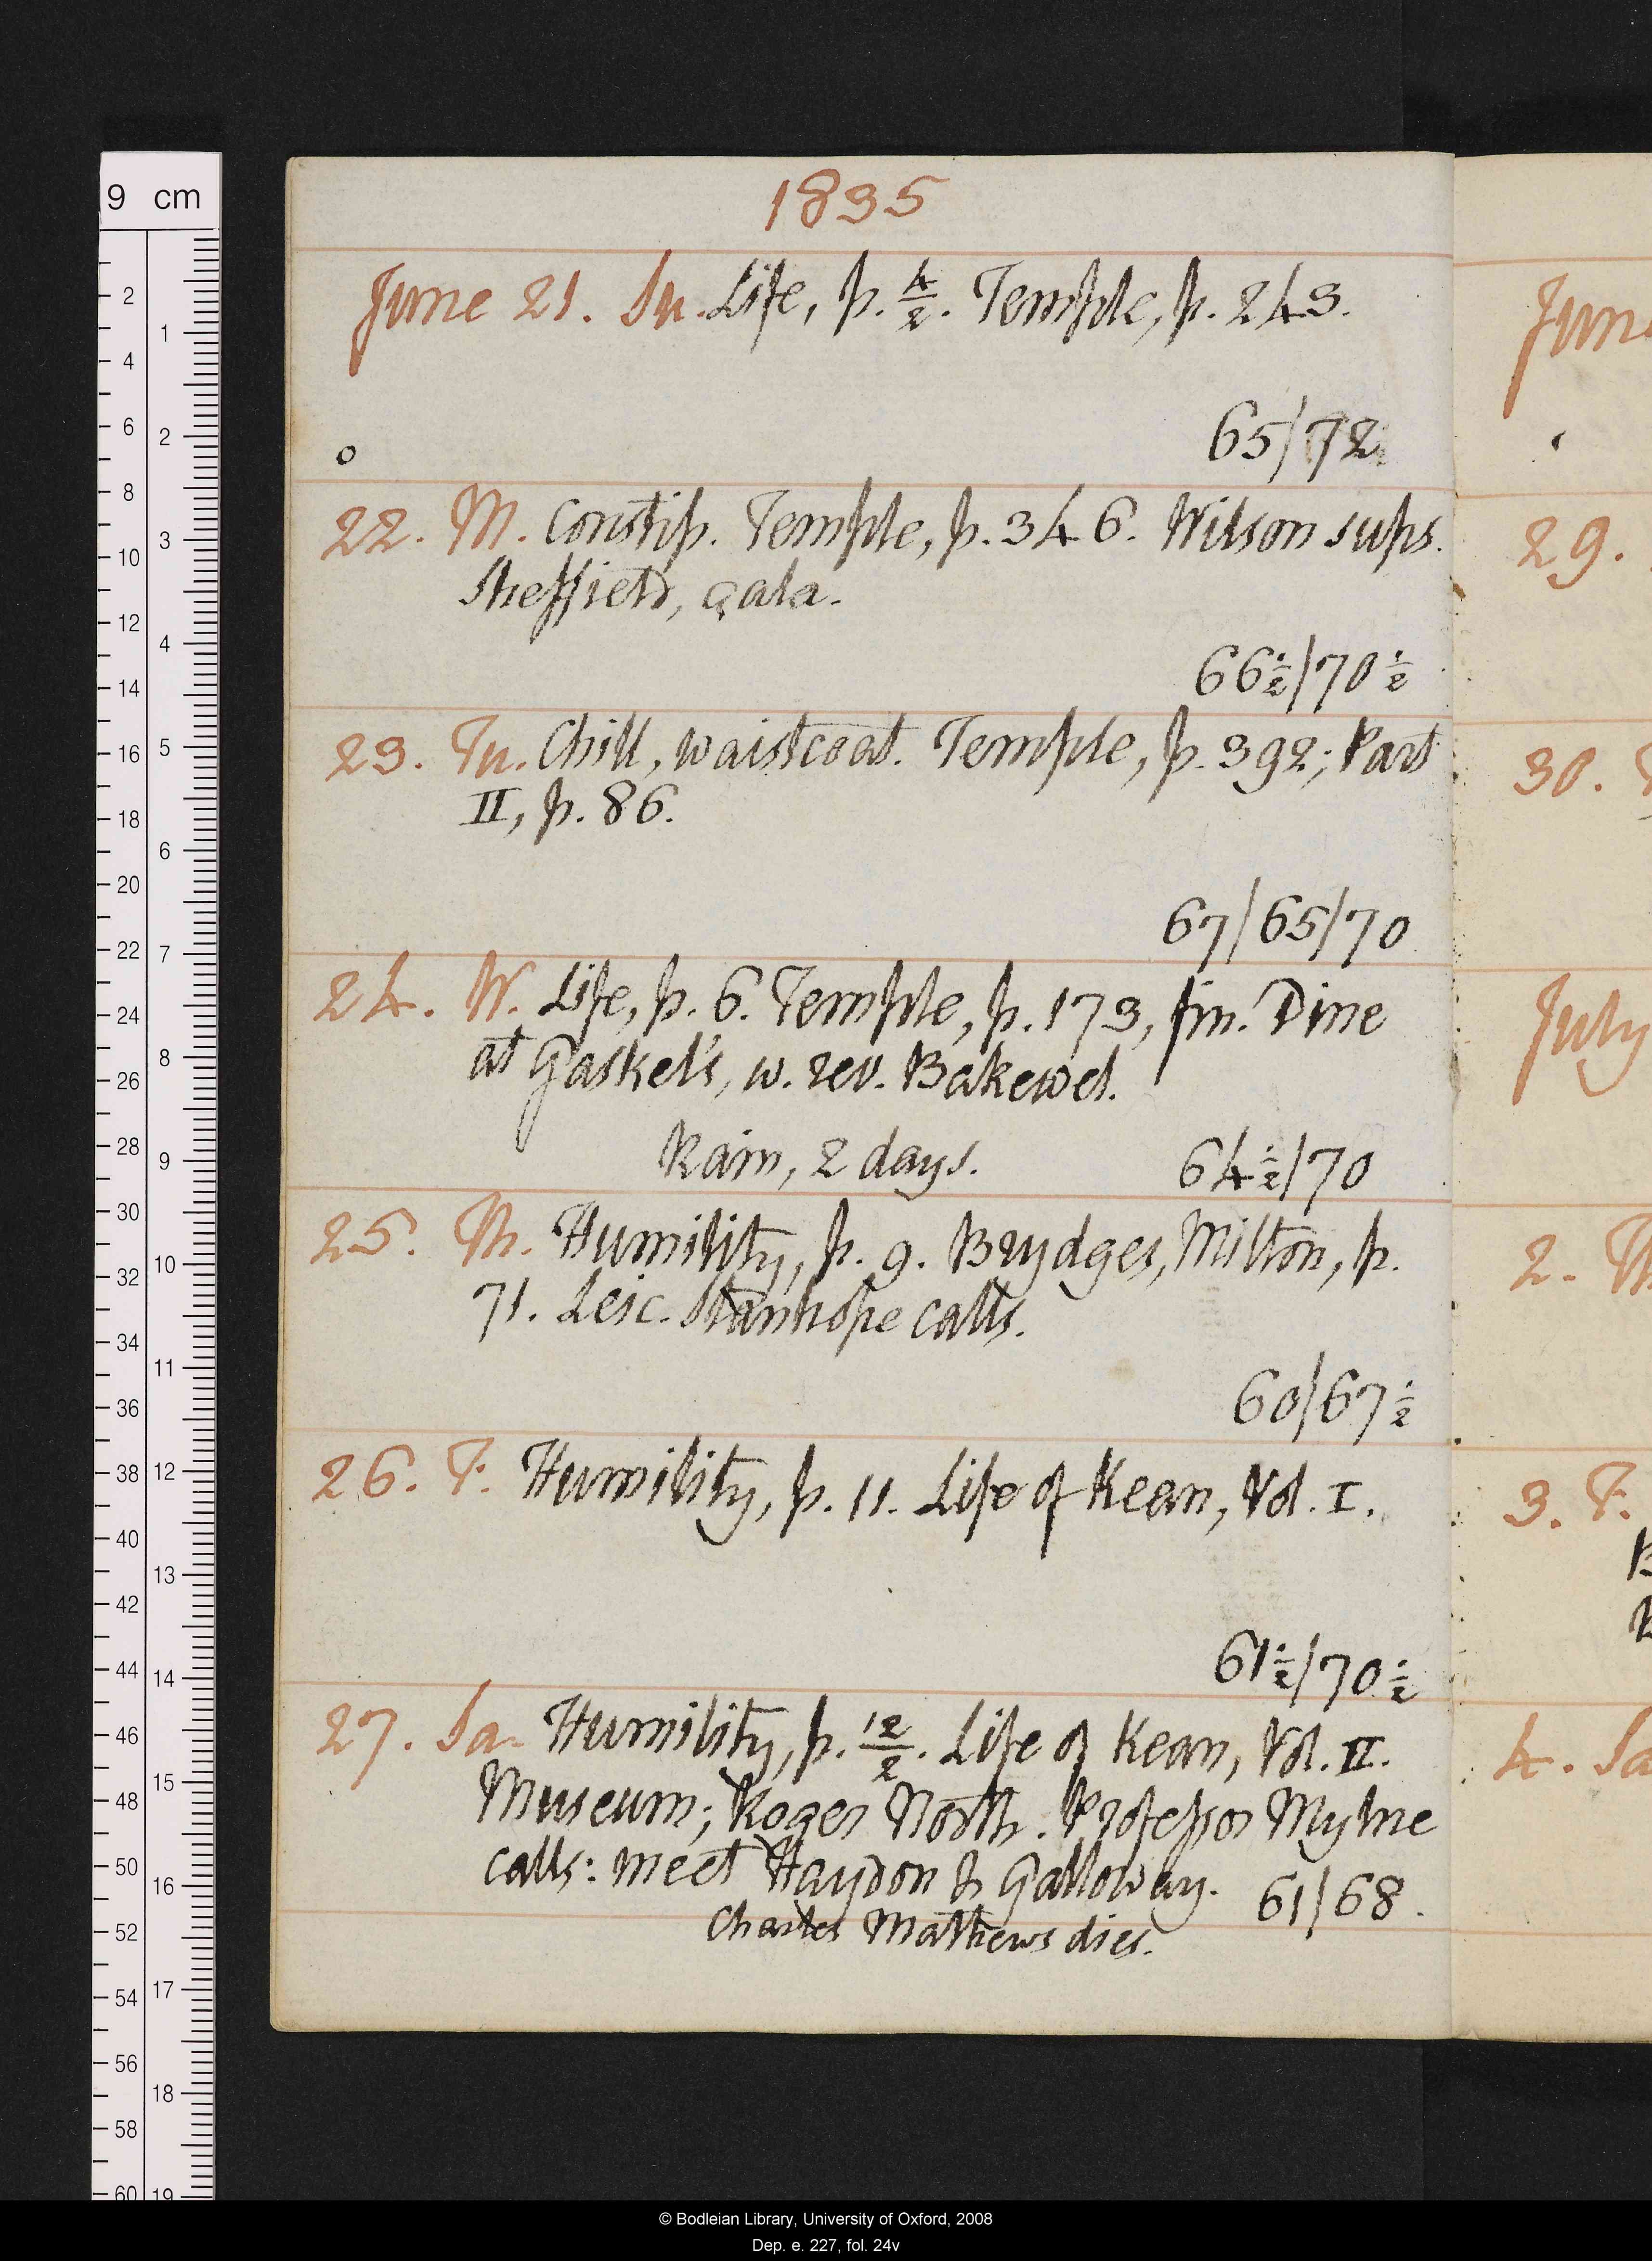 1835
June 21. Su. Life, p. 4/2. Temple, p. 243.
65/72
22. M. Constip. Temple, p. 346. Wilson sups.
Sheffield, gala.
66½/70½
23. Tu. Chill, waistcoat. Temple, p. 392; Part
II, p. 86.
67/65/70
24. W. Life, p. 6. Temple, p. 173, fin. Dine
at Gaskel's, w. rev. Bakewel.
Rain, 2 days. 64½/70
25. Th. Humility, p. 9. Brydges, Milton, p.
71. Leic. Stanhope calls.
60/67½
26. F. Humility, p. 11. Life of Kean, Vol. I.
61½/70½
27. Sa. Humility, p. 12/2. Life of Kean, Vol. II.
Museum; Roger North. Professor Mylne
calls: meet Haydon & Galloway. 61/68.
Charles Mathews dies.
June
29.
30.
July
2. Th
3. F.
4. Sa
9 cm
2 4 6 8 10 12 14 16 18 20 22 24 26 28 30 32 34 36 38 40 42 44 46 48 50 52 54 56 58 60
1 2 3 4 5 6 7 8 9 10 11 12 13 14 15 16 17 18 19
© Bodleian Library, University of Oxford, 2008
Dep. e. 227, fol. 24v